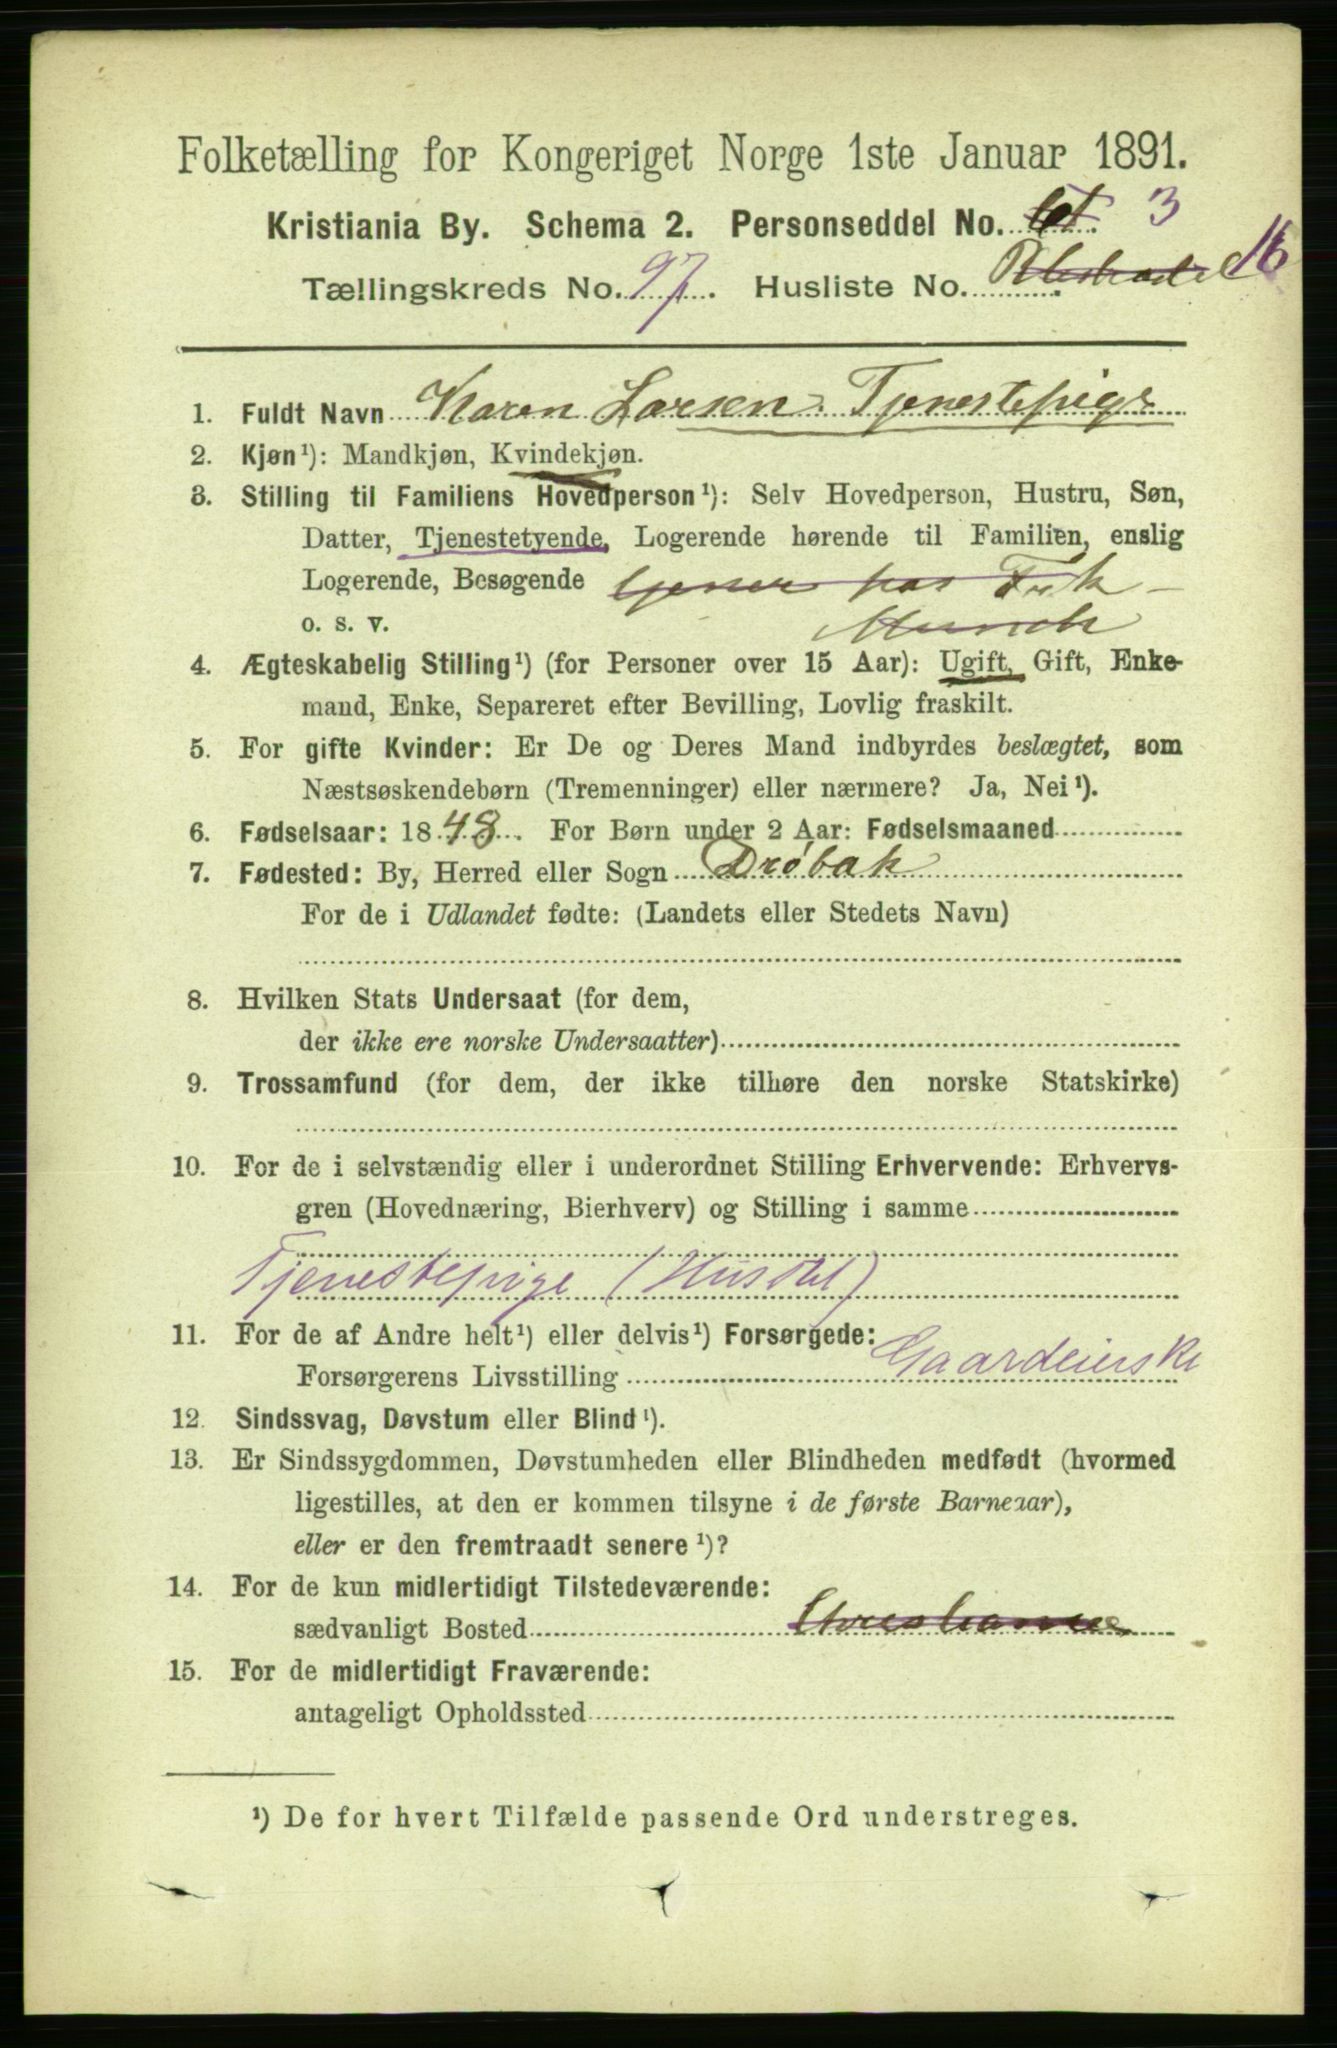 Folketælling for Kongeriget Norge 1ste Januar 1891.
Kristiania By. Schema 2. Personseddel No. 3
Tællingskreds No. 97. Husliste No. 16
1. Fuldt Navn Karen Larsen. Tjenestepige
2. Kjøn¹): Mandkjøn, Kvindekjøn.
3. Stilling til Familiens Hovedperson¹): Selv Hovedperson, Hustru, Søn,
Datter, Tjenestetyende, Logerende hørende til Familien, enslig
Logerende, Besøgende tjener hos Frk
o. s. v. Munch
4. Ægteskabelig Stilling¹) (for Personer over 15 Aar): Ugift, Gift, Enke-
mand, Enke, Separeret efter Bevilling, Lovlig fraskilt.
5. For gifte Kvinder: Er De og Deres Mand indbyrdes beslægtet, som
Næstsøskendebørn (Tremenninger) eller nærmere? Ja, Nei¹).
6. Fødselsaar: 1848. For Børn under 2 Aar: Fødselsmaaned
7. Fødested: By, Herred eller Sogn Drøbak
For de i Udlandet fødte: (Landets eller Stedets Navn)
8. Hvilken Stats Undersaat (for dem,
der ikke ere norske Undersaatter)
9. Trossamfund (for dem, der ikke tilhøre den norske Statskirke)
10. For de i selvstændig eller i underordnet Stilling Erhvervende: Erhvervs-
gren (Hovednæring, Bierhverv) og Stilling i samme
Tjenestepige (Hust)
11. For de af Andre helt¹) eller delvis¹) Forsørgede:
Forsørgerens Livsstilling Gaardeierske
12. Sindssvag, Døvstum eller Blind¹).
13. Er Sindssygdommen, Døvstumheden eller Blindheden medfødt (hvormed
ligestilles, at den er kommen tilsyne i de første Barneaar),
eller er den fremtraadt senere¹)?
14. For de kun midlertidigt Tilstedeværende:
sædvanligt Bosted Christiania
15. For de midlertidigt Fraværende:
antageligt Opholdssted
¹) De for hvert Tilfælde passende Ord understreges.